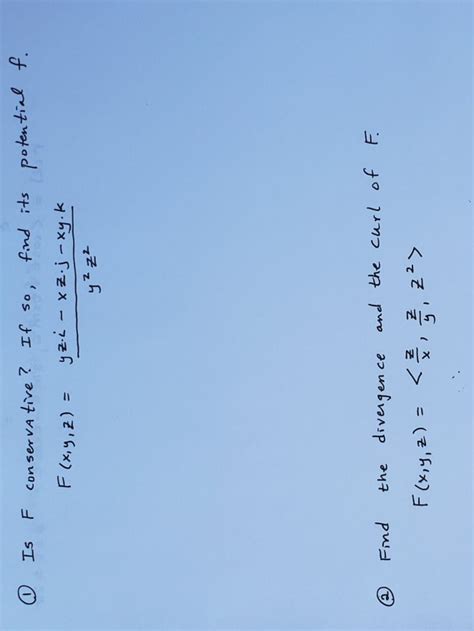 ① Is F conservative? If so, find its potential f.
F(x,y,z) = (yz·i − xz·j − xy·k) / (y²z²)
② Find the divergence and the curl of F.
F(x,y,z) = < z/x, z/y, z² >